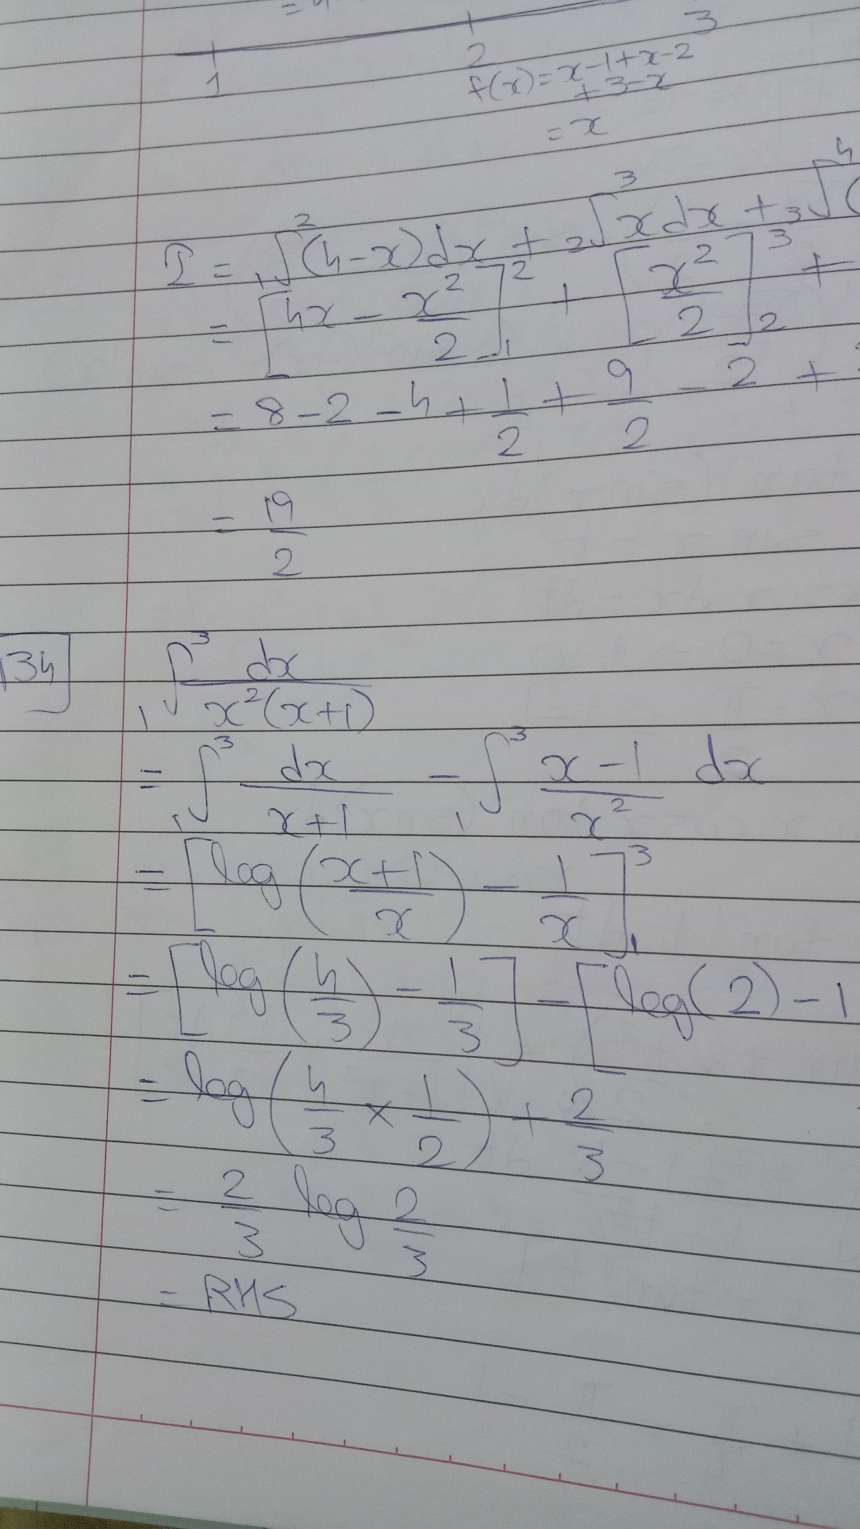 1 2 3
f(x) = x-1+x-2
+ 3-x
= x
I = ₁∫²(4-x)dx + ₂∫³ x dx + ₃∫⁴(
= [4x - x²/2]₁² + [x²/2]₂³ +
= 8 - 2 - 4 + 1/2 + 9/2 - 2 +
= 19/2
34] ₁∫³ dx/x²(x+1)
= ₁∫³ dx/x+1 - ₁∫³ x-1/x² dx
= [log(x+1/x) - 1/x]₁³
= [log(4/3) - 1/3] - [log(2) - 1
= log(4/3 × 1/2) + 2/3
= 2/3 log 2/3
= RHS